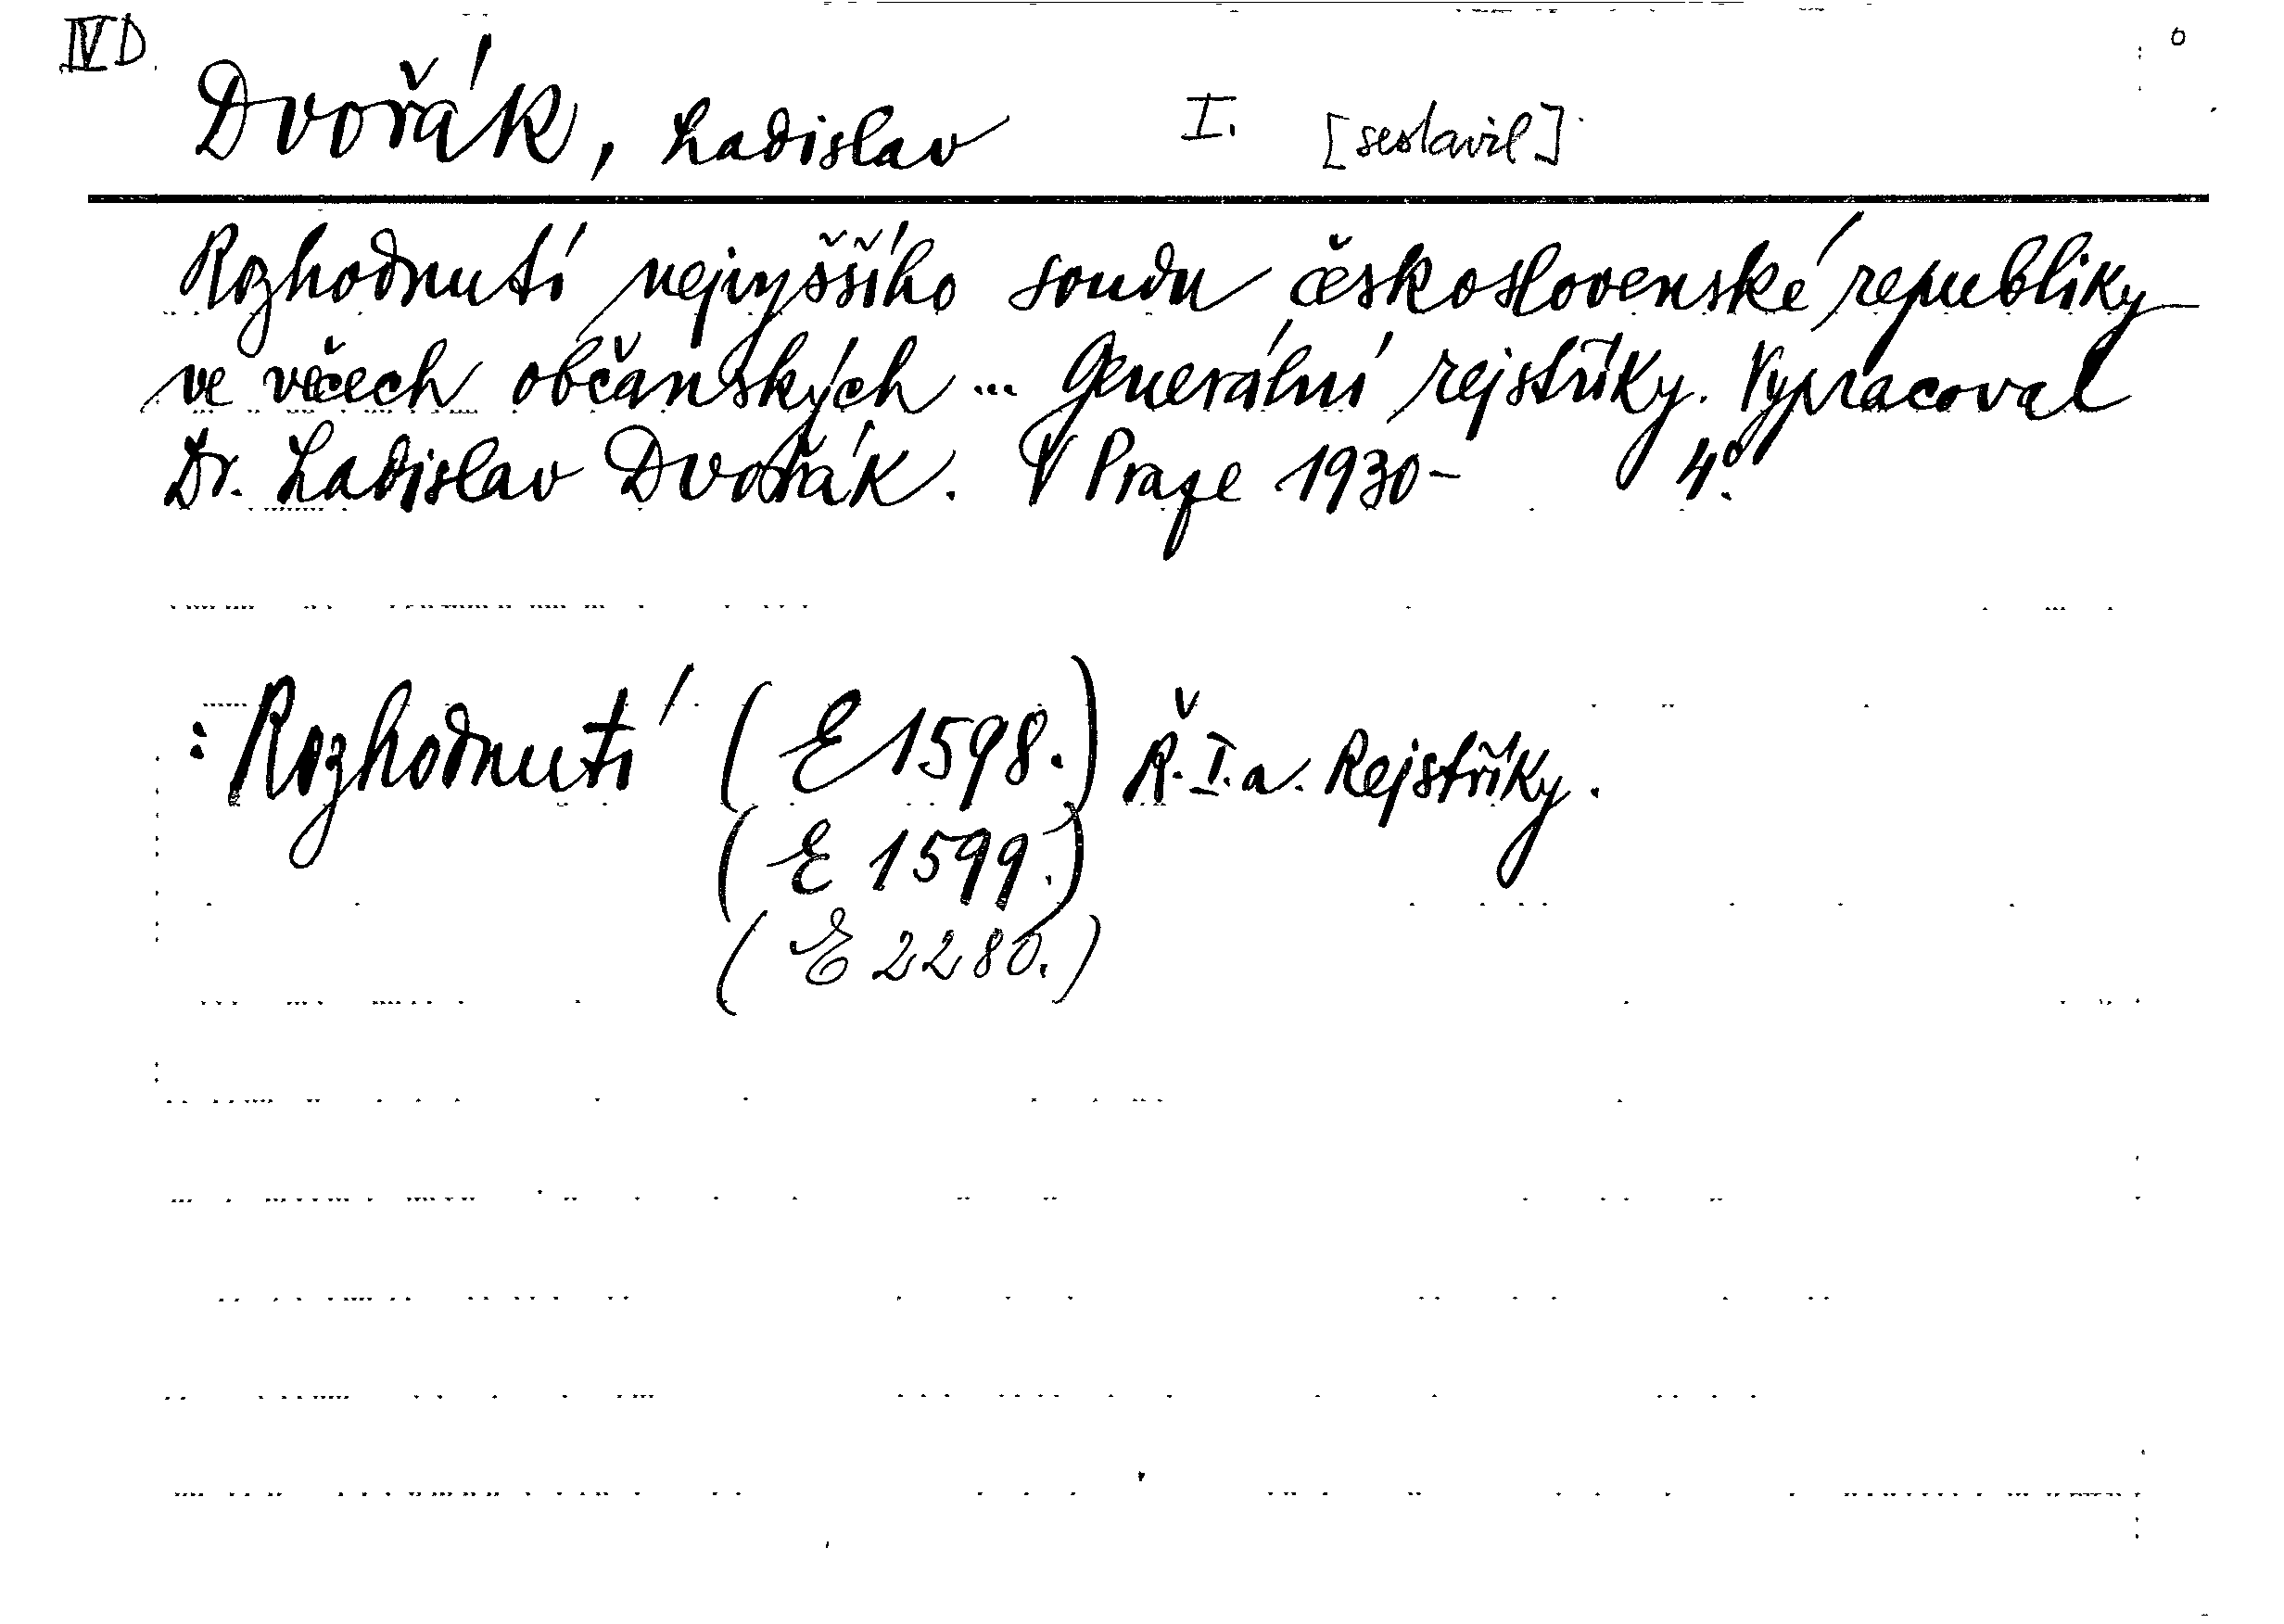 IV D.
Dvořák, Ladislav I. [sestavil]
Rozhodnutí nejvyššího soudu československé republiky
ve věcech občanských ... Generální rejstříky. Vypracoval
Dr. Ladislav Dvořák. V Praze 1930- 4°.
: Rozhodnutí (E 1598.) Ř. I. a. Rejstříky.
(E 1599.)
(E 2280.)